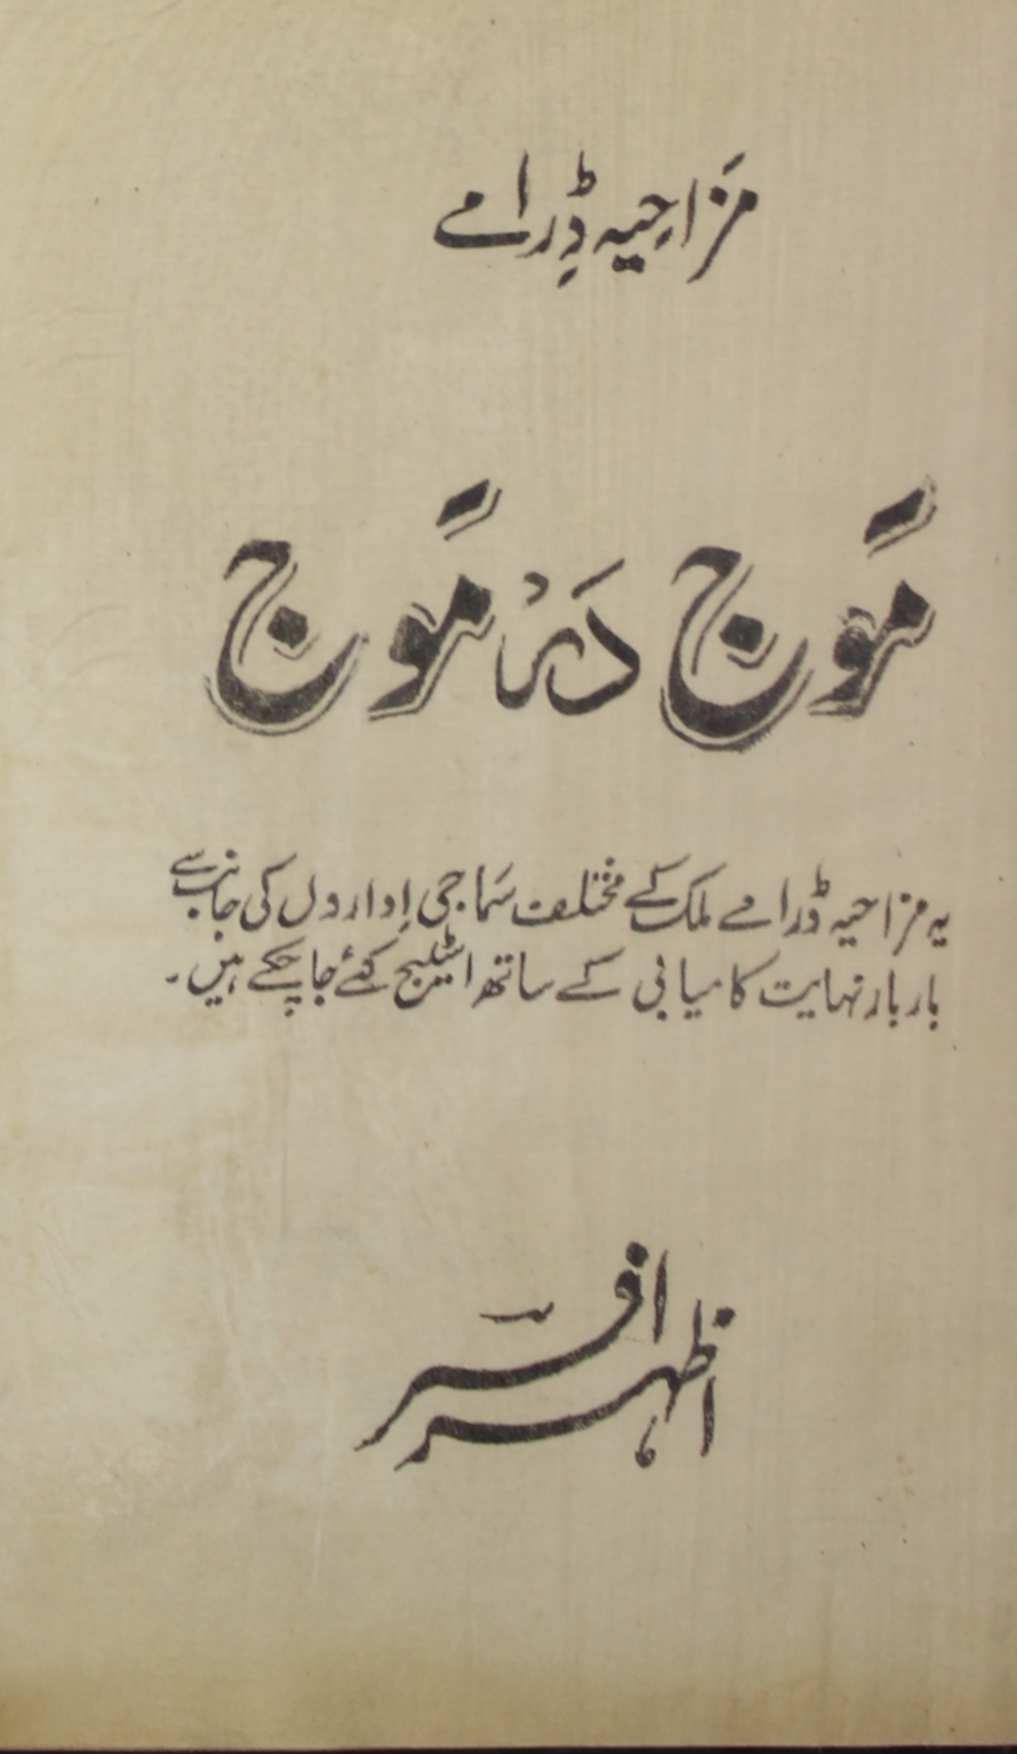 مَزاحِیہ ڈِرامے
مَوج دَر مَوج
یہ مزاحیہ ڈرامے ملک کے مختلف سَماجی اِداروں کی جانب سے
بار بار نہایت کامیابی کے ساتھ اسٹیج کئے جاچکے ہیں۔
اظہر افسر